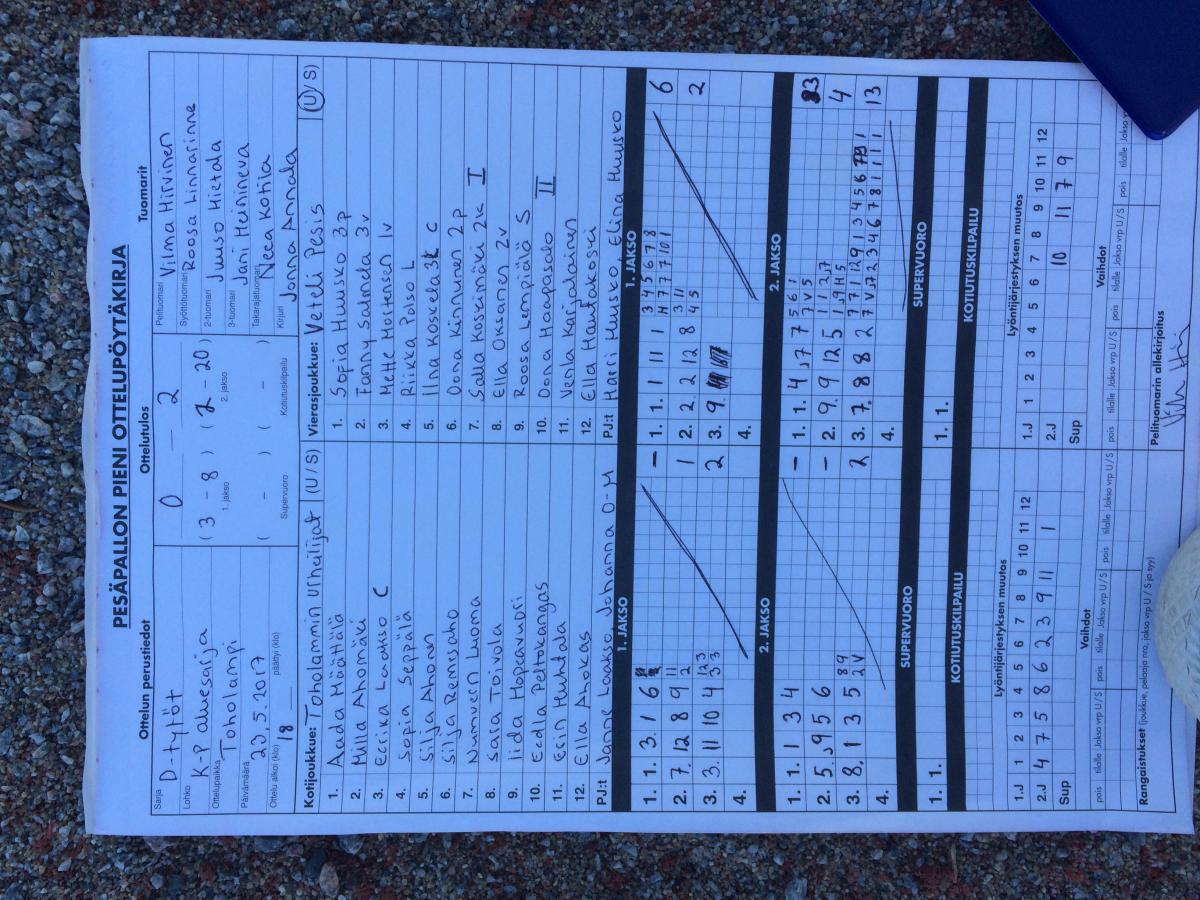 PESÄPALLON PIENI OTTELUPÖYTÄKIRJA
Ottelun perustiedot
Sarja D-tytöt
Lohko K-P aluesarja
Ottelupaikka Toholampi
Päivämäärä 23.5.2017
Ottelu alkoi (klo) 18 päättyi (klo)
Ottelutulos
0 – 2
(3 - 8) (2 - 20)
1. jakso 2. jakso
( - ) ( - )
Supervuoro Kotiutuskilpailu
Tuomarit
Pelituomari Vilma Hirvinen
Syöttötuomari Roosa Linnarinne
2-tuomari Juuso Hietala
3-tuomari Jani Heinineva
Takarajatuomari Neea Kotila
Kirjuri Jonna Annala
Kotijoukkue: Toholammin Urheilijat (U / S)
1. Aada Määttälä
2. Milla Ahomäki
3. Eerika Laakso C
4. Sofia Seppälä
5. Silja Ahonen
6. Silja Remsaho
7. Luoma
8. Sara Toivola
9. Iida Hopeavuori
10. Eedla Peltokangas
11. Erin Huhtala
12. Ella Ahokas
PJ:t Janne Laakso, Johanna O-M
Vierasjoukkue: Veteli Pesis (U / S)
1. Sofia Huusko 3p
2. Fanny Salmela 3v
3. Mette Mortensen 1v
4. Riikka Polso L
5. Iina Koskela 3k C
6. Oona Kinnunen 2p
7. Salla Koskimäki 2k I
8. Ella Oksanen 2v
9. Roosa Lempiälä S
10. Oona Haapasalo II
11. Venla Karjalainen
12. Ella Haukakoski
PJ:t Harri Huusko, Elina Huusko
1. JAKSO
1. 1. 3. 1 6 –
2. 7. 12 8 9 11 2 1
3. 3. 11 10 4 123 33 2
4.
1. JAKSO
1. 1. 1 11 1 6
2. 2. 2 12 8 2
3. 9.
4.
2. JAKSO
1. 1. 1 3 4 –
2. 5. 9 5 6 –
3. 8. 1 3 5 89 2V 2
4.
2. JAKSO
1. 1. 4
2. 9. 9 12 5 4
3. 7. 8 8 2 13
4.
SUPERVUORO
1. 1.
SUPERVUORO
1. 1.
KOTIUTUSKILPAILU
KOTIUTUSKILPAILU
Lyöntijärjestyksen muutos
1.J 1 2 3 4 5 6 7 8 9 10 11 12
2.J 4 7 5 8 6 2 3 9 11 1
Sup
Lyöntijärjestyksen muutos
1.J 1 2 3 4 5 6 7 8 9 10 11 12
2.J 10 11 7 9
Sup
Vaihdot
pois tilalle Jakso vrp U/S pois tilalle Jakso vrp U/S pois tilalle Jakso vrp U/S
Vaihdot
pois tilalle Jakso vrp U/S pois tilalle Jakso vrp U/S pois tilalle Jakso
Rangaistukset (joukkue, pelaaja nro, jakso vrp U / S ja syy)
Pelituomarin allekirjoitus